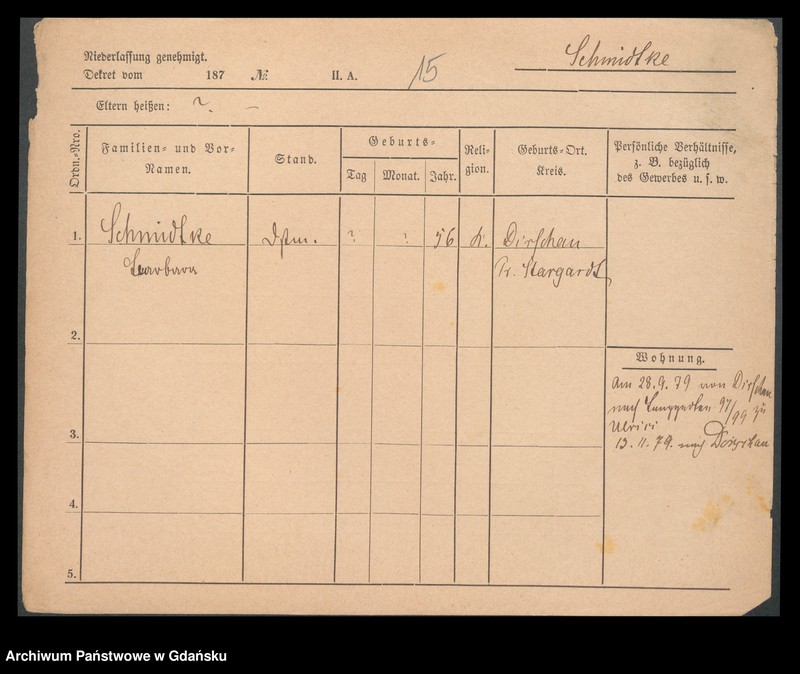 Schmidtke
Niederlassung genehmigt.
Dekret vom 187 № II. A. 15
Eltern heißen: ?. —
Ordn.-Nro.
Familien- und Vor-
Namen.
Stand.
Geburts-
Tag Monat. Jahr.
Reli-
gion.
Geburts-Ort.
Kreis.
Persönliche Verhältnisse,
z. B. bezüglich
des Gewerbes u. s. w.
1. Schmidtke Dstm. ? ? 56 k. Dirschau
Barbara Pr. Stargardt
2.
Wohnung.
Am 28.9.79 von Dirschau
nach Langgarten 97/99 zu
Ulrici
13.11.79. nach Dirschau
3.
4.
5.
Archiwum Państwowe w Gdańsku